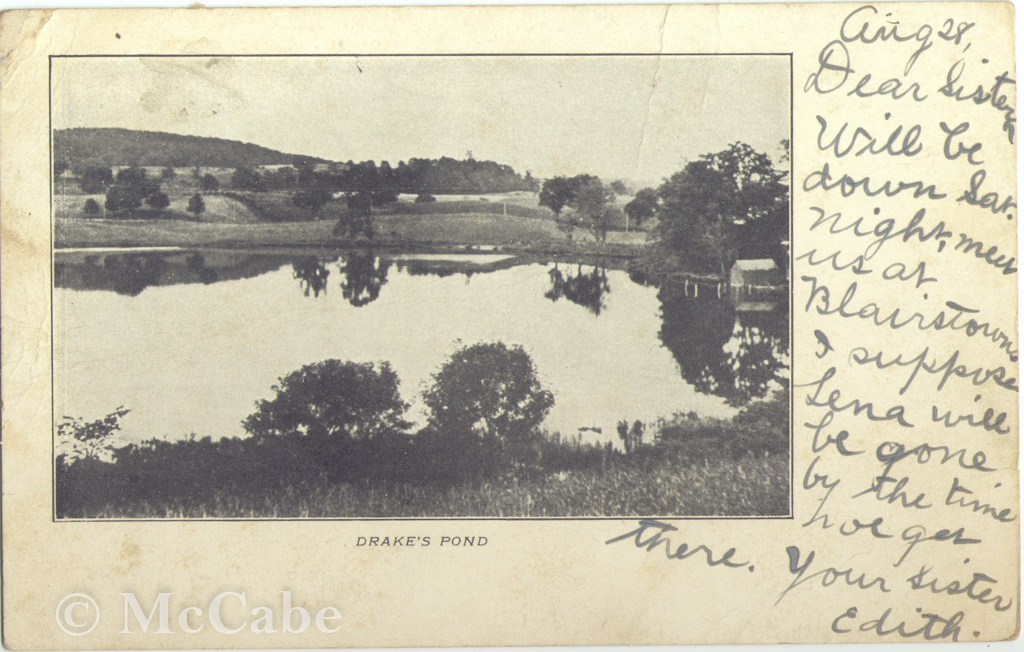 Aug 28,
Dear Sister
Will be
down Sat.
night, meet
us at
Blairstown
I suppose
Lena will
be gone
by the time
we get
there. Your Sister
Edith.
DRAKE'S POND
© McCabe